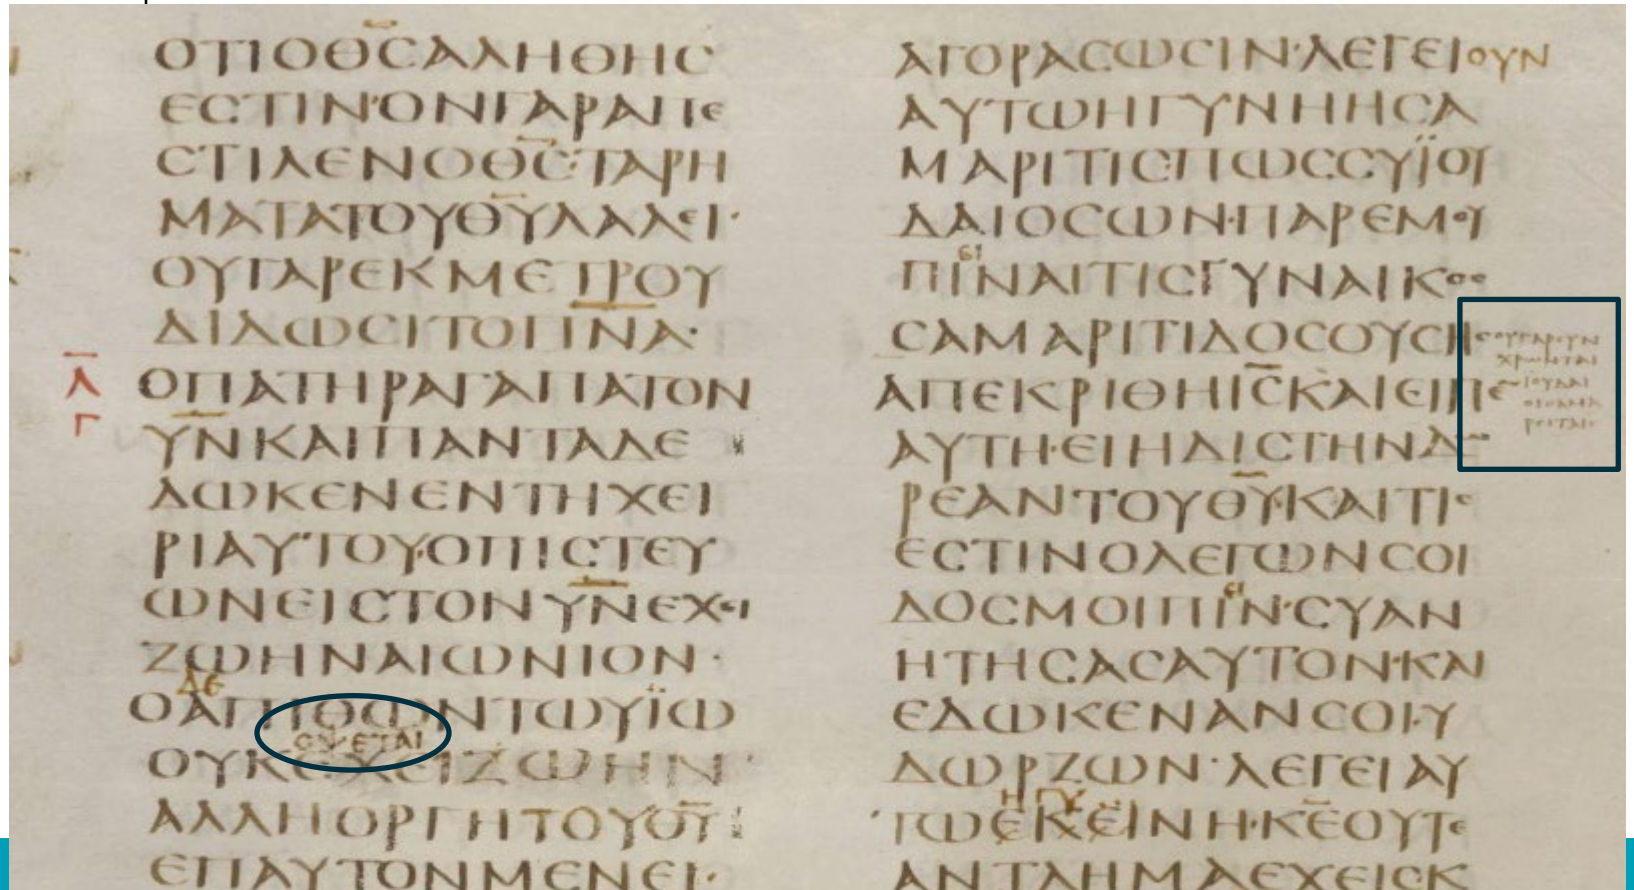 ΟΤΙΟΘ̅Ϲ̅ΑΛΗΘΗϹ
ΕϹΤΙΝ·ΟΝΓΑΡΑΠΕ
ϹΤΙΛΕΝΟΘ̅Ϲ̅·ΤΑΡΗ
ΜΑΤΑΤΟΥΘ̅Υ̅ΛΑΛΕΙ·
ΟΥΓΑΡΕΚΜΕΤΡΟΥ
ΔΙΔΩϹΙΤΟΠ̅Ν̅Α̅·
Λ̅
Γ
ΟΠΑΤΗΡΑΓΑΠΑΤΟΝ
Υ̅Ν̅ΚΑΙΠΑΝΤΑΔΕ
ΔΩΚΕΝΕΝΤΗΧΕΙ
ΡΙΑΥΤΟΥ·ΟΠΙϹΤΕΥ
ΩΝΕΙϹΤΟΝΥ̅Ν̅ΕΧΕΙ
ΖΩΗΝΑΙΩΝΙΟΝ·
ΔΕ
ΟΑΠΙΘΩΝΤΩΥΪΩ
ΟΨΕΤΑΙ
ΟΥΚΕΧΕΙΖΩΗΝ·
ΑΛΛΗΟΡΓΗΤΟΥΘ̅Υ̅
ΕΠΑΥΤΟΝΜΕΝΕΙ·
ΑΓΟΡΑϹΩϹΙΝ·ΛΕΓΕΙΟΥΝ
ΑΥΤΩΗΓΥΝΗΗϹΑ
ΜΑΡΙΤΙϹ·ΠΩϹϹΥΪΟΥ
ΔΑΙΟϹΩΝ·ΠΑΡΕΜΟΥ
ΕΙ
ΠΙΝΑΙΤΙϹΓΥΝΑΙΚΟϹ
ϹΑΜΑΡΙΤΙΔΟϹΟΥϹΗϹ
ΟΥΓΑΡϹΥΝ
ΧΡΩΝΤΑΙ
ΙΟΥΔΑΙ
ΟΙϹΑΜΑ
ΡΕΙΤΑΙϹ
ΑΠΕΚΡΙΘΗΙ̅Ϲ̅ΚΑΙΕΙΠΕ̅
ΑΥΤΗ·ΕΙΗΔΙϹΤΗΝΔΩ
ΡΕΑΝΤΟΥΘ̅Υ̅·ΚΑΙΤΙϹ
ΕϹΤΙΝΟΛΕΓΩΝϹΟΙ
ΕΙ
ΔΟϹΜΟΙΠΙΝ·ϹΥΑΝ
ΗΤΗϹΑϹΑΥΤΟΝ·ΚΑΙ
ΕΔΩΚΕΝΑΝϹΟΙ·Υ
ΔΩΡΖΩΝ·ΛΕΓΕΙΑΥ
ΗΓΥ
ΤΩΕΚΕΙΝΗ·Κ̅Ε̅ΟΥΤΕ
ΑΝΤΛΗΜΑΕΧΕΙϹΚ